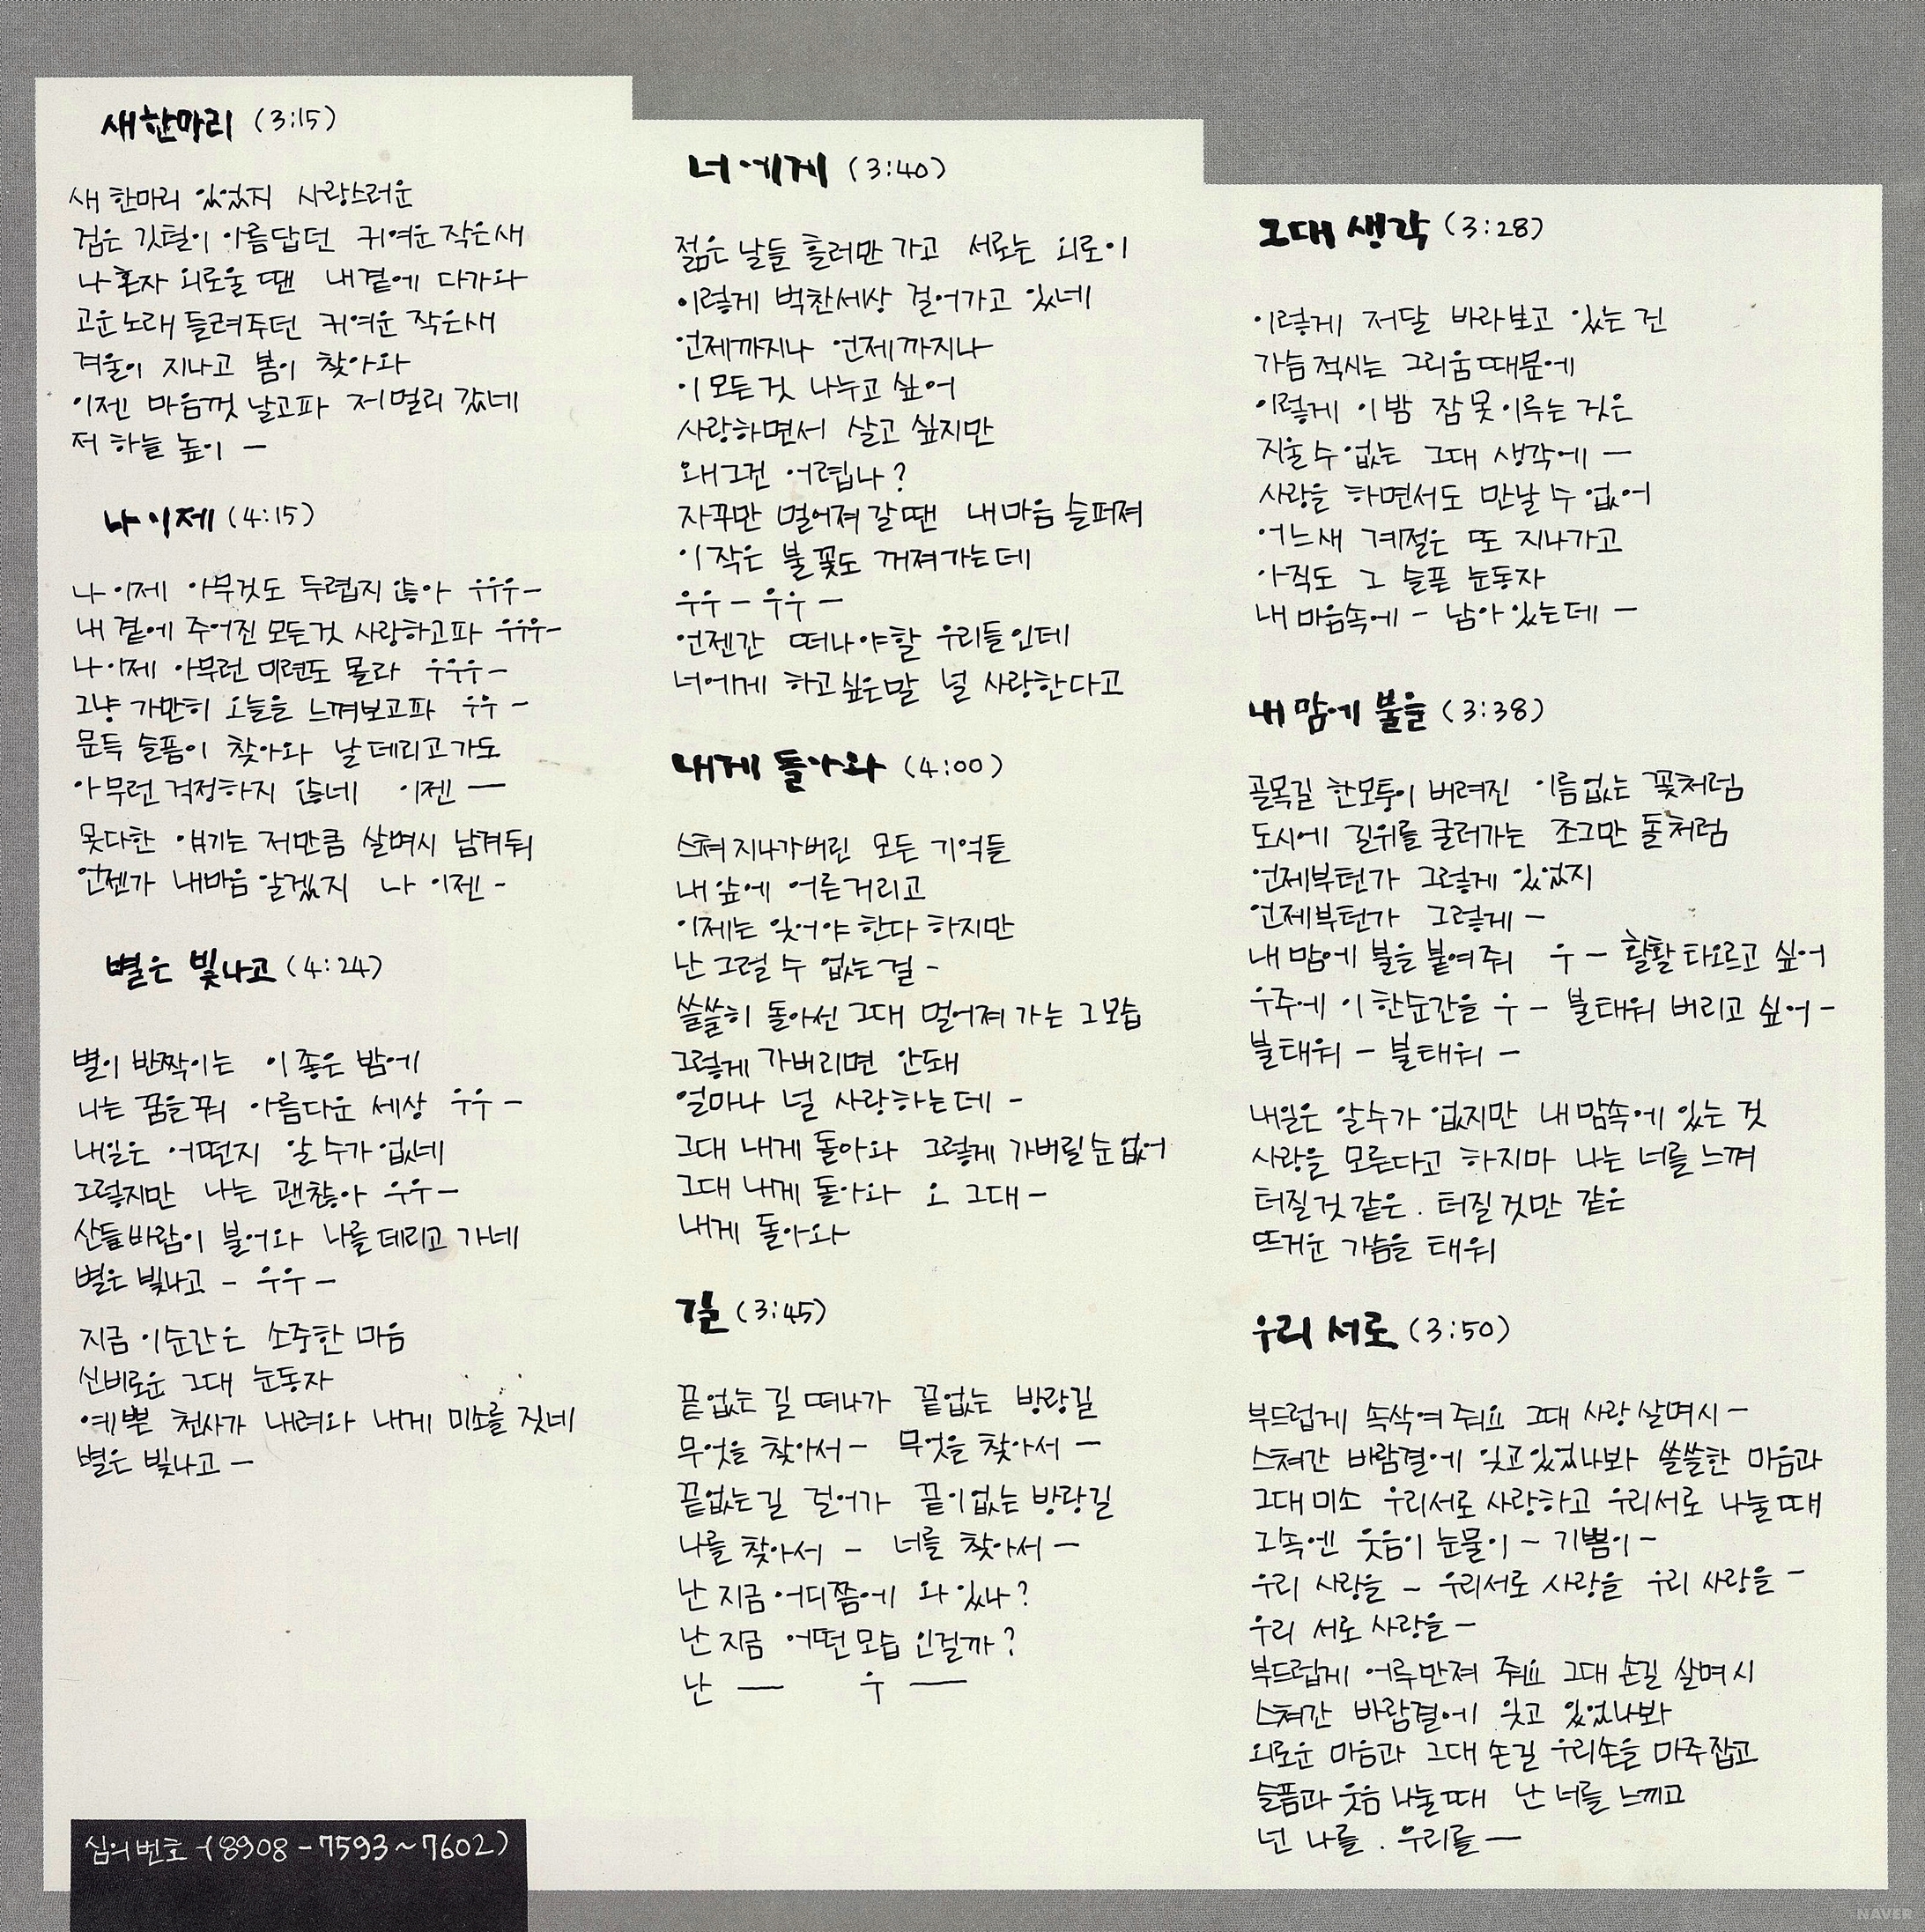 새 한마리 (3:15)
새 한마리 있었지 사랑스러운
검은 깃털이 아름답던 귀여운 작은새
나 혼자 외로울 땐 내곁에 다가와
고운노래 들려주던 귀여운 작은새
겨울이 지나고 봄이 찾아와
이젠 마음껏 날고파 저멀리 갔네
저 하늘 높이 —
나 이제 (4:15)
나 이제 아무것도 두렵지 않아 우우우-
내 곁에 주어진 모든것 사랑하고파 우우우-
나 이제 아무런 미련도 몰라 우우우-
그냥 가만히 오늘을 느껴보고파 우우 -
문득 슬픔이 찾아와 날 데리고가도
아무런 걱정하지 않네 이젠 —
못다한 얘기는 저만큼 살며시 남겨둬
언젠가 내마음 알겠지 나 이젠 -
별은 빛나고 (4:24)
별이 반짝이는 이 좋은 밤에
나는 꿈을꿔 아름다운 세상 우우 -
내일은 어떤지 알 수가 없네
그렇지만 나는 괜찮아 우우-
산들바람이 불어와 나를 데리고 가네
별은 빛나고 - 우우 -
지금 이순간은 소중한 마음
신비로운 그대 눈동자
예쁜 천사가 내려와 내게 미소를 짓네
별은 빛나고 —
심의번호-(8908-7593~7602)
너에게 (3:40)
젊은 날들 흘러만 가고 서로는 외로이
이렇게 벅찬세상 걸어가고 있네
언제까지나 언제까지나
이 모든것 나누고 싶어
사랑하면서 살고 싶지만
왜그건 어렵나?
자꾸만 멀어져 갈땐 내마음 슬퍼져
이 작은 불꽃도 꺼져가는데
우우 - 우우 -
언젠간 떠나야할 우리들인데
너에게 하고싶은말 널 사랑한다고
내게 돌아와 (4:00)
스쳐 지나가버린 모든 기억들
내 앞에 어른거리고
이제는 잊어야 한다 하지만
난 그럴 수 없는걸 -
쓸쓸히 돌아선 그대 멀어져 가는 그모습
그렇게 가버리면 안돼
얼마나 널 사랑하는데 -
그대 내게 돌아와 그렇게 가버릴순 없어
그대 내게 돌아와 오 그대 -
내게 돌아와
길 (3:45)
끝없는 길 떠나가 끝없는 방랑길
무엇을 찾아서 - 무엇을 찾아서 -
끝없는길 걸어가 끝이없는 방랑길
나를 찾아서 - 너를 찾아서 -
난 지금 어디쯤에 와 있나?
난 지금 어떤 모습 인걸까?
난 — 우 —
그대 생각 (3:28)
이렇게 저달 바라보고 있는 건
가슴 적시는 그리움때문에
이렇게 이 밤 잠 못 이루는 것은
지울 수 없는 그대 생각에 -
사랑을 하면서도 만날 수 없어
어느새 계절은 또 지나가고
아직도 그 슬픈 눈동자
내 마음속에 - 남아 있는데 -
내 맘에 불을 (3:38)
골목길 한모퉁이 버려진 이름없는 꽃처럼
도시에 길위를 굴러가는 조그만 돌처럼
언제부턴가 그렇게 있었지
언제부턴가 그렇게 -
내 맘에 불을 붙여줘 우 - 활활 타오르고 싶어
우주에 이 한순간을 우 - 불태워 버리고 싶어 -
불태워 - 불태워 -
내일은 알수가 없지만 내맘속에 있는 것
사랑을 모른다고 하지마 나는 너를 느껴
터질것 같은. 터질 것만 같은
뜨거운 가슴을 태워
우리 서로 (3:50)
부드럽게 속삭여 줘요 그대 사랑 살며시 -
스쳐간 바람결에 잊고있었나봐 쓸쓸한 마음과
그대미소 우리서로 사랑하고 우리서로 나눌때
그속엔 웃음이 눈물이 - 기쁨이 -
우리 사랑을 - 우리서로 사랑을 우리 사랑을 -
우리 서로 사랑을 -
부드럽게 어루만져 줘요 그대 손길 살며시
스쳐간 바람결에 잊고 있었나봐
외로운 마음과 그대 손길 우리손을 마주잡고
슬픔과 웃음 나눌때 난 너를 느끼고
넌 나를. 우리를 —
NAVER